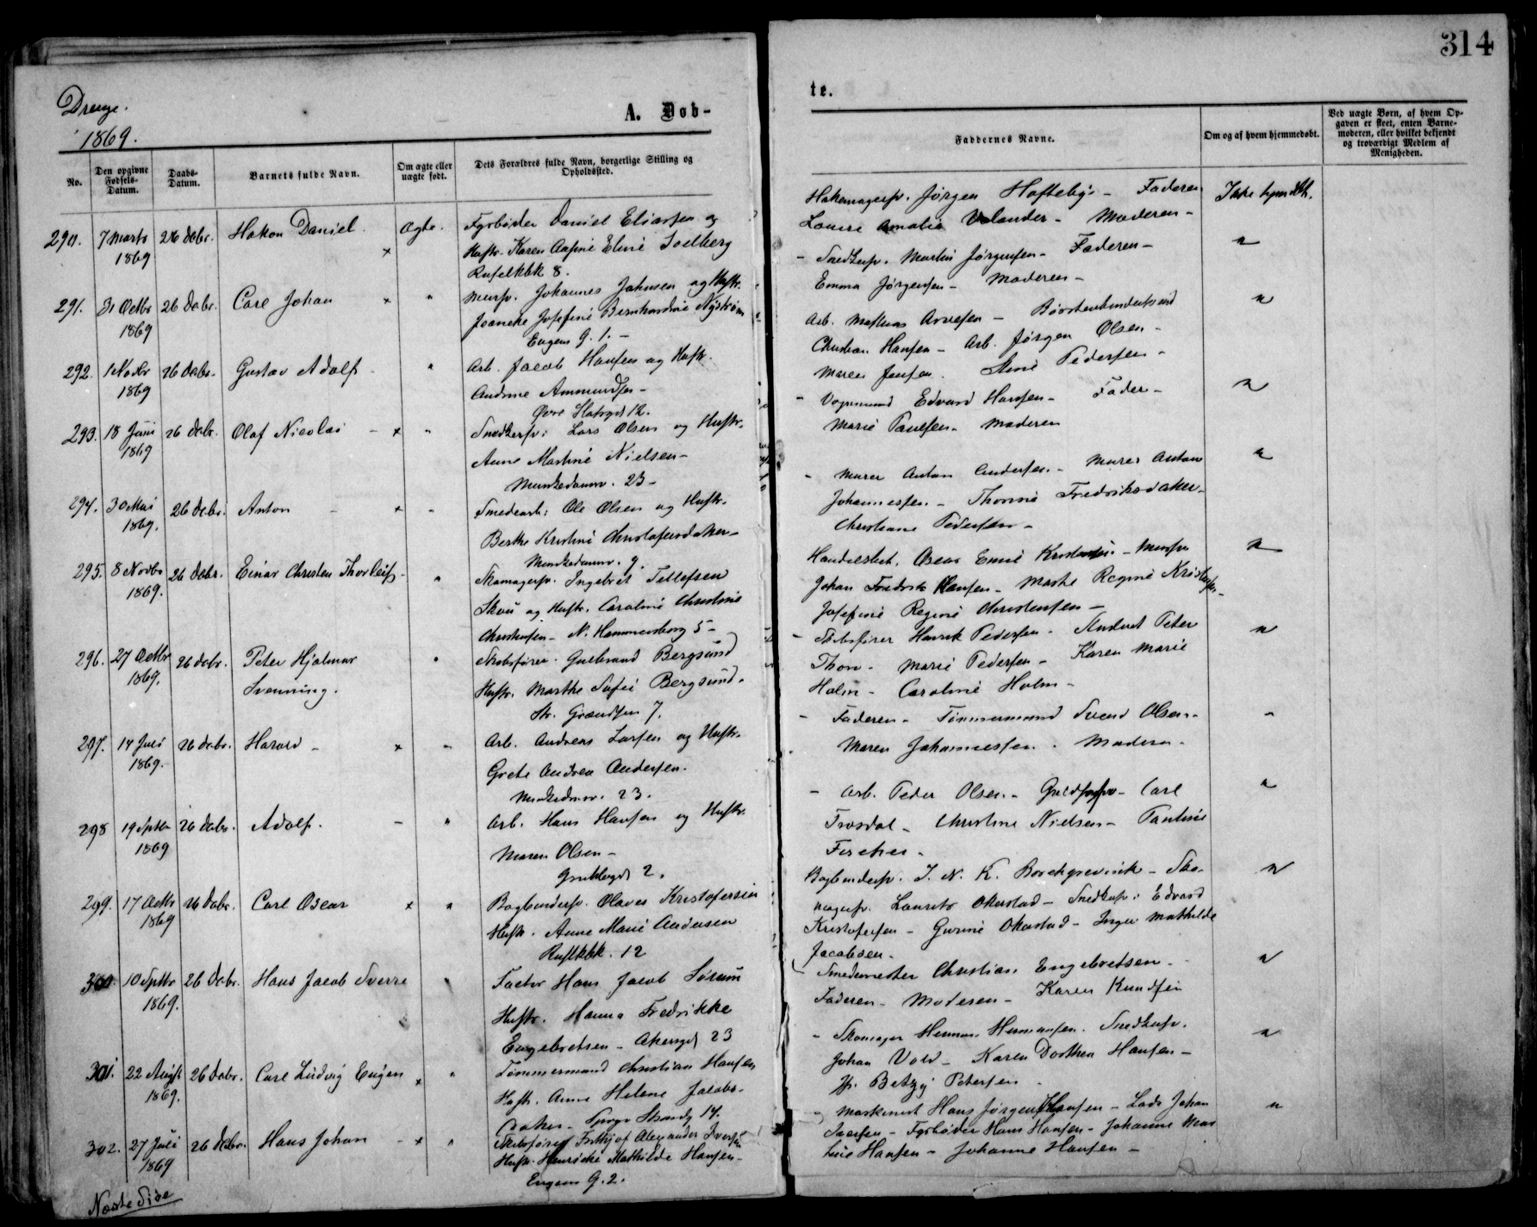 314
Drenge.
1869.
A. Døb-
te.
No.
Den opgivne Fødsels-Datum.
Daabs-Datum.
Barnets fulde Navn.
Om ægte eller uægte født.
Dets Forældres fulde Navn, borgerlige Stilling og Opholdssted.
Faddernes Navne.
Om og af hvem hjemmedøbt.
Ved uægte Børn, af hvem Opgaven er skeet, enten Barnemoderen, eller hvilket bekjendt og troværdigt Medlem af Menigheden.
290. 7 Marts 26 Decbr. Hakon Daniel. Ægte. Fyrbøder Daniel Eliassen og
1869 × Hustr. Karen Eline Solberg
8.
Jørgen - Faderen
Louise Amalie - Moderen -
291. 31 Octbr 26 Decbr. Carl Johan × " Mursv. Johannes Johnsen og Hustr.
1869 Josefine Bernhardine Nystrøm
Eugens G. 1. -
- Snedksv. Martin Jørgensen - Faderen - "
Emma Jørgensen - Moderen -
292. 1 Novbr 26 Decbr. Gustav Adolf - " Arb. Jacob Hansen og Hustr.
1869 Andrine Ammundsen -
Øvre Slotsgd 12.
Arb. Mathias - "
Christian Hansen - Arb. Jørgen Olsen -
Maren Jensen. Pedersen -
293. 18 Juni 26 Decbr. Olaf Nicolai - × " Snedkersv: Lars Olsen og Hustr.
1869 Anne Martine Nielsen -
Munkedamv. 23 -
- Vognmand Edvard Hansen - Fader - "
Marie Paulsen - Moderen
294. 30 Mai 26 Decbr. Anton - × - Smedearb: Ole Olsen og Hustr.
1869. Berthe Kristine Christofersdatter -
Munkedamv. 9.
- Murer Anton Andersen - Murer Anton "
Johannessen - Thorine Fredriksdatter -
Christiane Pedersen -
295. 8 Novbr 26 Decbr. Einar Christen Thorleif - " Skomagersv. Ingebret Tellefsen
1869. og Hustr. Caroline Christine
Christensen - N. Hammersborg 5 -
Oscar - Mursv "
Johan Fredrik Hansen - Marthe Regine
Josefine Regine Christensen -
296. 27 Octbr 26 Decbr. Peter Hjalmar " Skibsfører Gulbrand Bergsund
1869. Svenning. Hustr. Marthe Sofie Bergsund.
St. Grændsen 7.
- Skibsfører Henrik Pedersen - Student Peter "
Thon - Marie Pedersen - Karen Marie
Holm - Caroline Holm -
297. 14 Juli 26 Decbr. Harald - × " Arb. Andreas Larsen og Hustr.
1869. Grete Andrea Andersen.
Munkedamv. 23.
- Faderen - Tømmermand Svend Olsen - "
Maren Johannessen. Moderen -
298 19 Septbr 26 Decbr. Adolf. - " Arb. Hans Hansen og Hustr.
1869 Maren Olsen -
2.
- Arb. Peder Olsen - - Carl "
- Christine Nielsen - Pauline
Fischer -
299. 17 Octbr 26 Decbr. Carl Oscar × " Bogbindersv. Olaves Kristofersen
1869 Hustr. Anne Marie Andersen
12
Bogbindersv. J. N. K. Borchgrevink - Sko- "
magersv. Laurits Økerstad - Snedksv: Edvard
Kristofersen - Gurine Økerstad - Inger Mathilde
Jacobsen -
300. 10 Septbr 26 Decbr. Hans Jacob Sverre " Factor Hans Jacob Sørum
1869. Hustr. Hanna Fredrikke
Engebretsen - Akersgd 23
- Smedemester Christian Engebretsen - "
Faderen - Moderen - Karen Knudsen
301. 22 Augst 26 Decbr. Carl Ludvig Eugen × " Tømmermand Christian Hansen
1869. Hustr. Anne Helene Jacobs-
datter - 14.
- Skomager Herman Hermansen. Snedksv. "
Johan Vold - Karen Dorthea Hansen -
Jfr. Betzy Petersen -
302. 27 Juli 26 Decbr. Hans Johan - × " Skibsfører Frithjof Alexander Iversen
1869 Hustr. Henricke Mathilde Hansen -
Eugens G. 2.
- Maskinist Hans Jørgen Hansen - Lods Johan "
Iversen - Fyrbøder Hans Hansen - Johanne Mar
Hansen - Johanne Hansen -
Næste Side